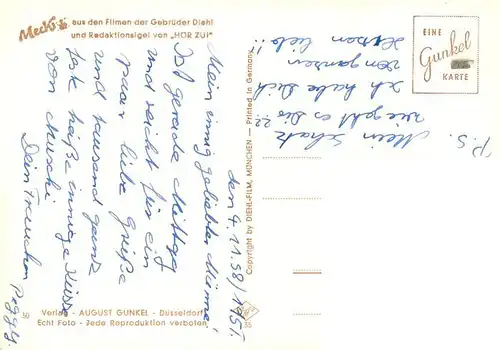 Mecki aus den Filmen der Gebrüder Diehl
und Redaktionsigel von „HÖR ZU!"
EINE
Gunkel
KARTE
den 4.11.58/1957.
Mein einzig geliebter Männe!
Ist gerade Mittag
und reicht für ein
paar liebe Grüße
und tausend ganz
feste heiße innige Küsse
von Deinem
Dein Frauchen Peggy.
P.S.
Mein Schatz
wie geht es Dir??
ich habe Dich
von ganzen
Herzen lieb!!
Copyright by DIEHL-FILM, MÜNCHEN — Printed in Germany
Verlag - AUGUST GUNKEL - Düsseldorf
Echt Foto - Jede Reproduktion verboten
50
35